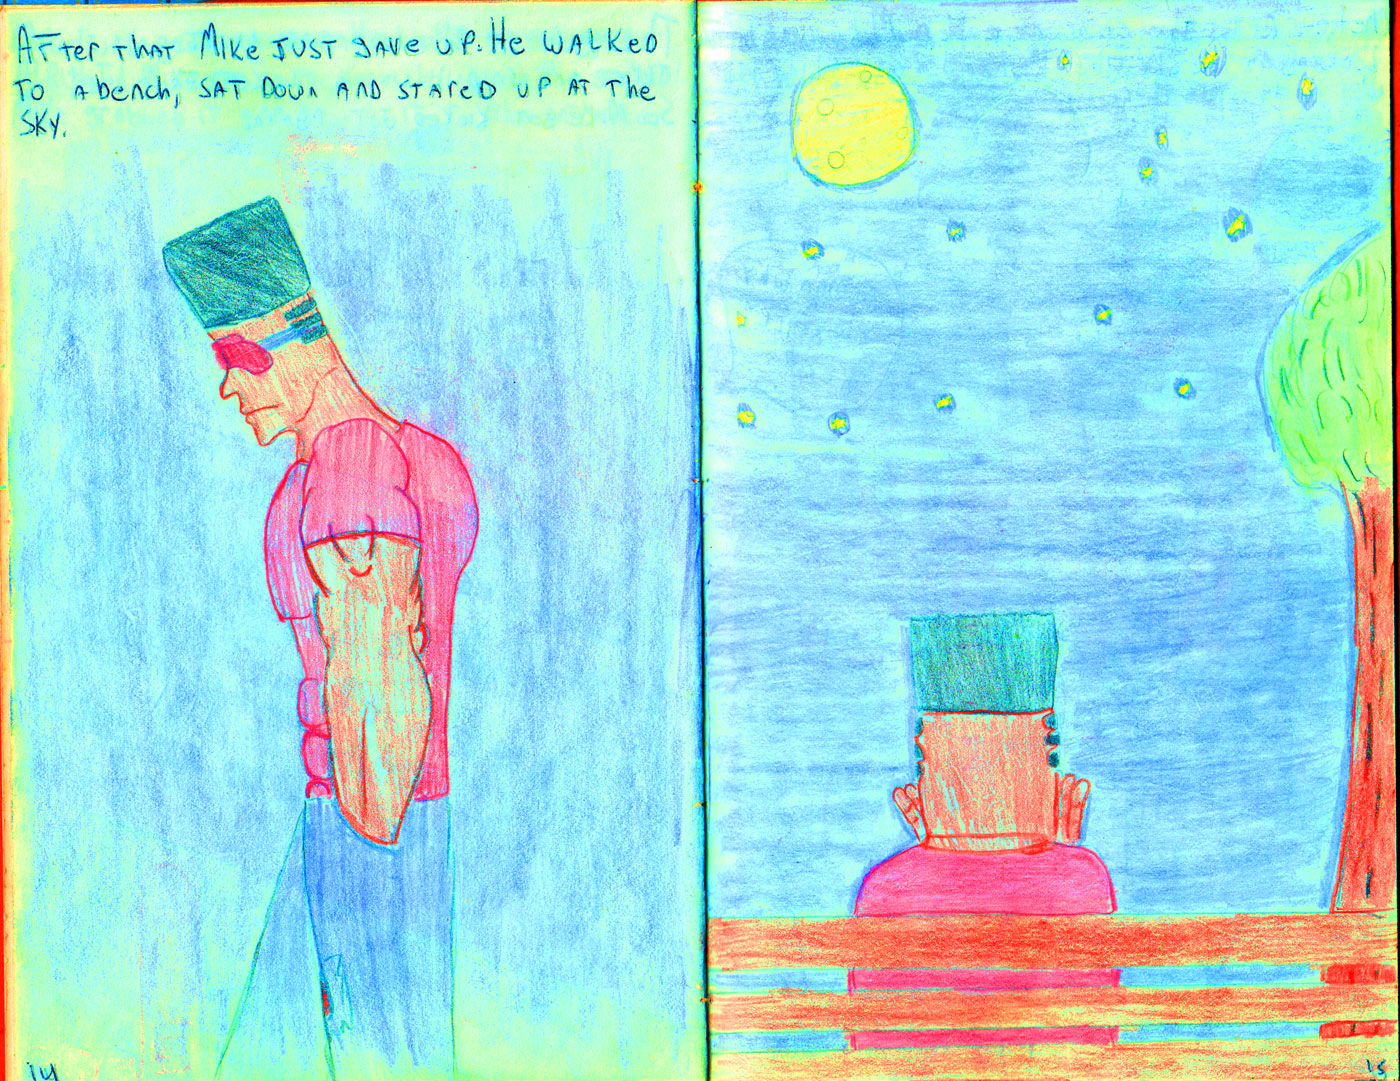 After that Mike just gave up. He walked
to a bench, sat down and stared up at the
sky.
14
15